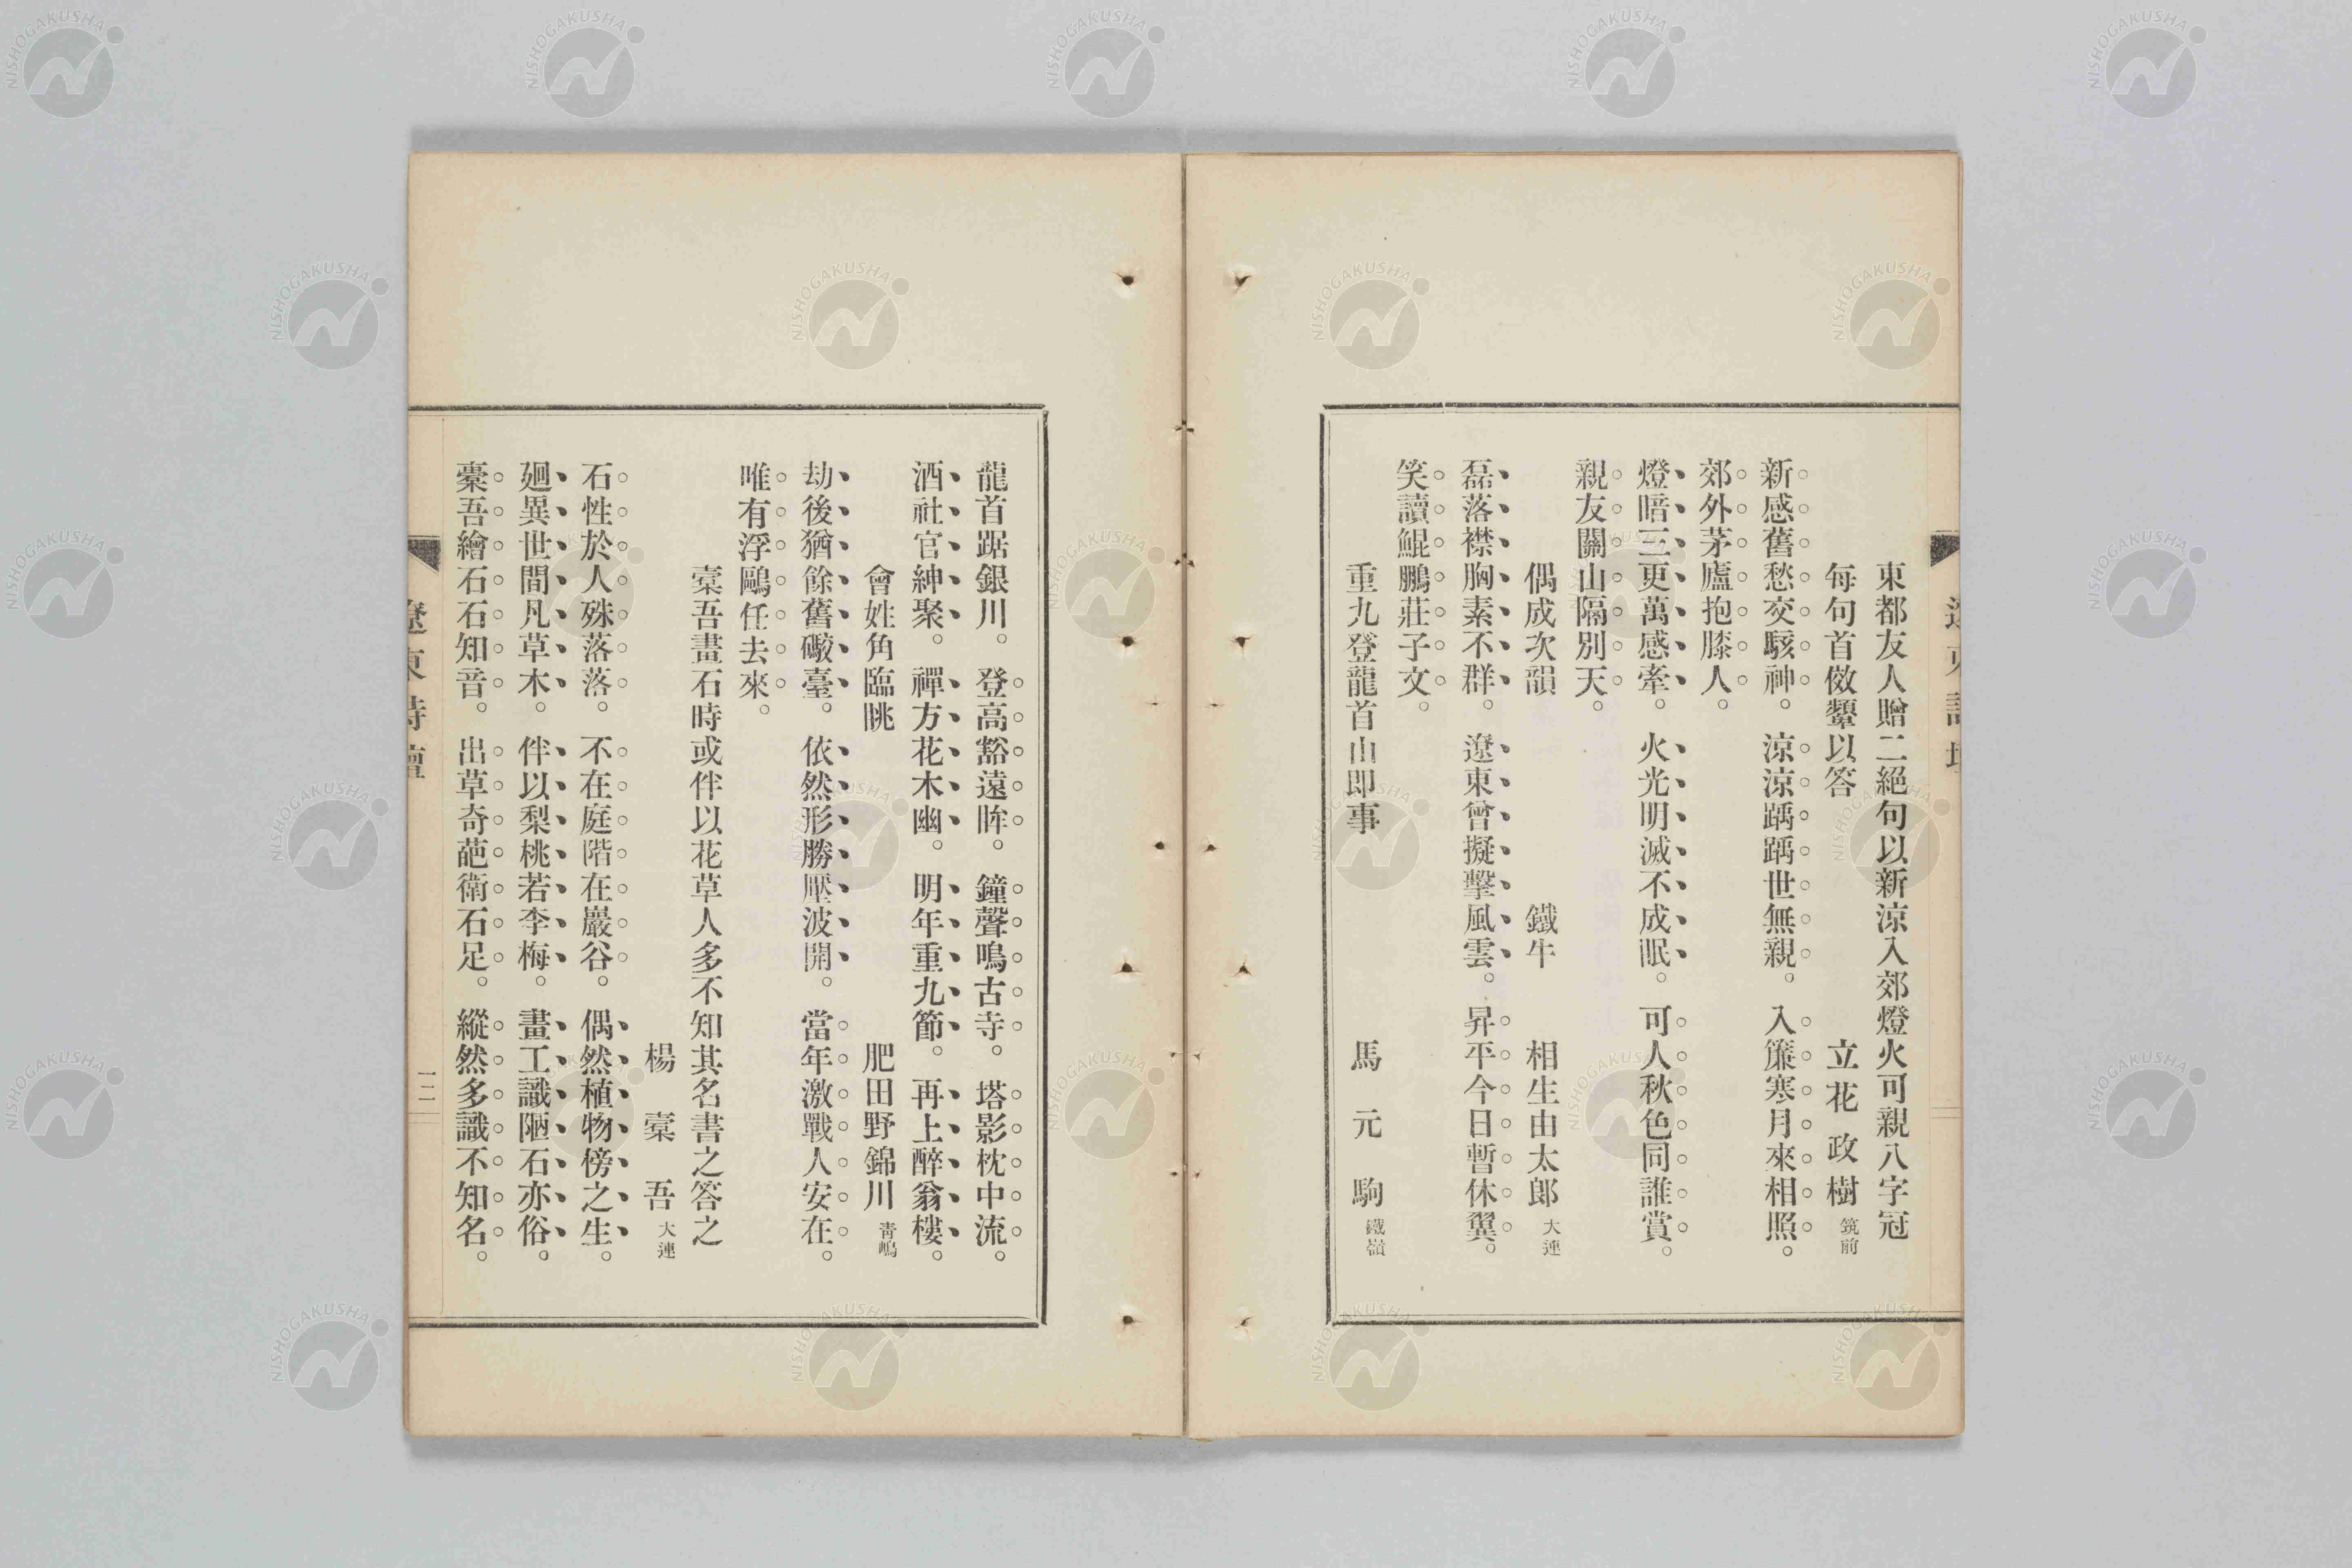 東都友人贈二絕句以新涼入郊燈火可親八字冠
每句首傚顰以答
立花政樹 筑前
新感舊愁交駭神。涼涼踽踽世無親。入簾寒月來相照。
郊外茅廬抱膝人。
燈暗三更萬感牽。火光明滅不成眠。可人秋色同誰賞。
親友關山隔別天。
偶成次韻
鐵牛 相生由太郎 大連
磊落襟胸素不群。遼東曾擬擊風雲。昇平今日暫休翼。
笑讀鯤鵬莊子文。
重九登龍首山即事
馬元駒 鐵嶺
龍首踞銀川。登高豁遠眸。鐘聲鳴古寺。塔影枕中流。
酒社官紳聚。禪方花木幽。明年重九節。再上醉翁樓。
會姓角臨眺
肥田野錦川 青嶋
劫後猶餘舊礮臺。依然形勝壓波開。當年激戰人安在。
唯有浮鷗任去來。
槖吾畫石時或伴以花草人多不知其名書之答之
楊槖吾 大連
石性於人殊落落。不在庭階在巖谷。偶然植物傍之生。
廻異世間凡草木。伴以梨桃若李梅。畫工識陋石亦俗。
槖吾繪石石知音。出草奇葩衛石足。縱然多識不知名。
遼東詩壇
一二
NISHOGAKUSHA